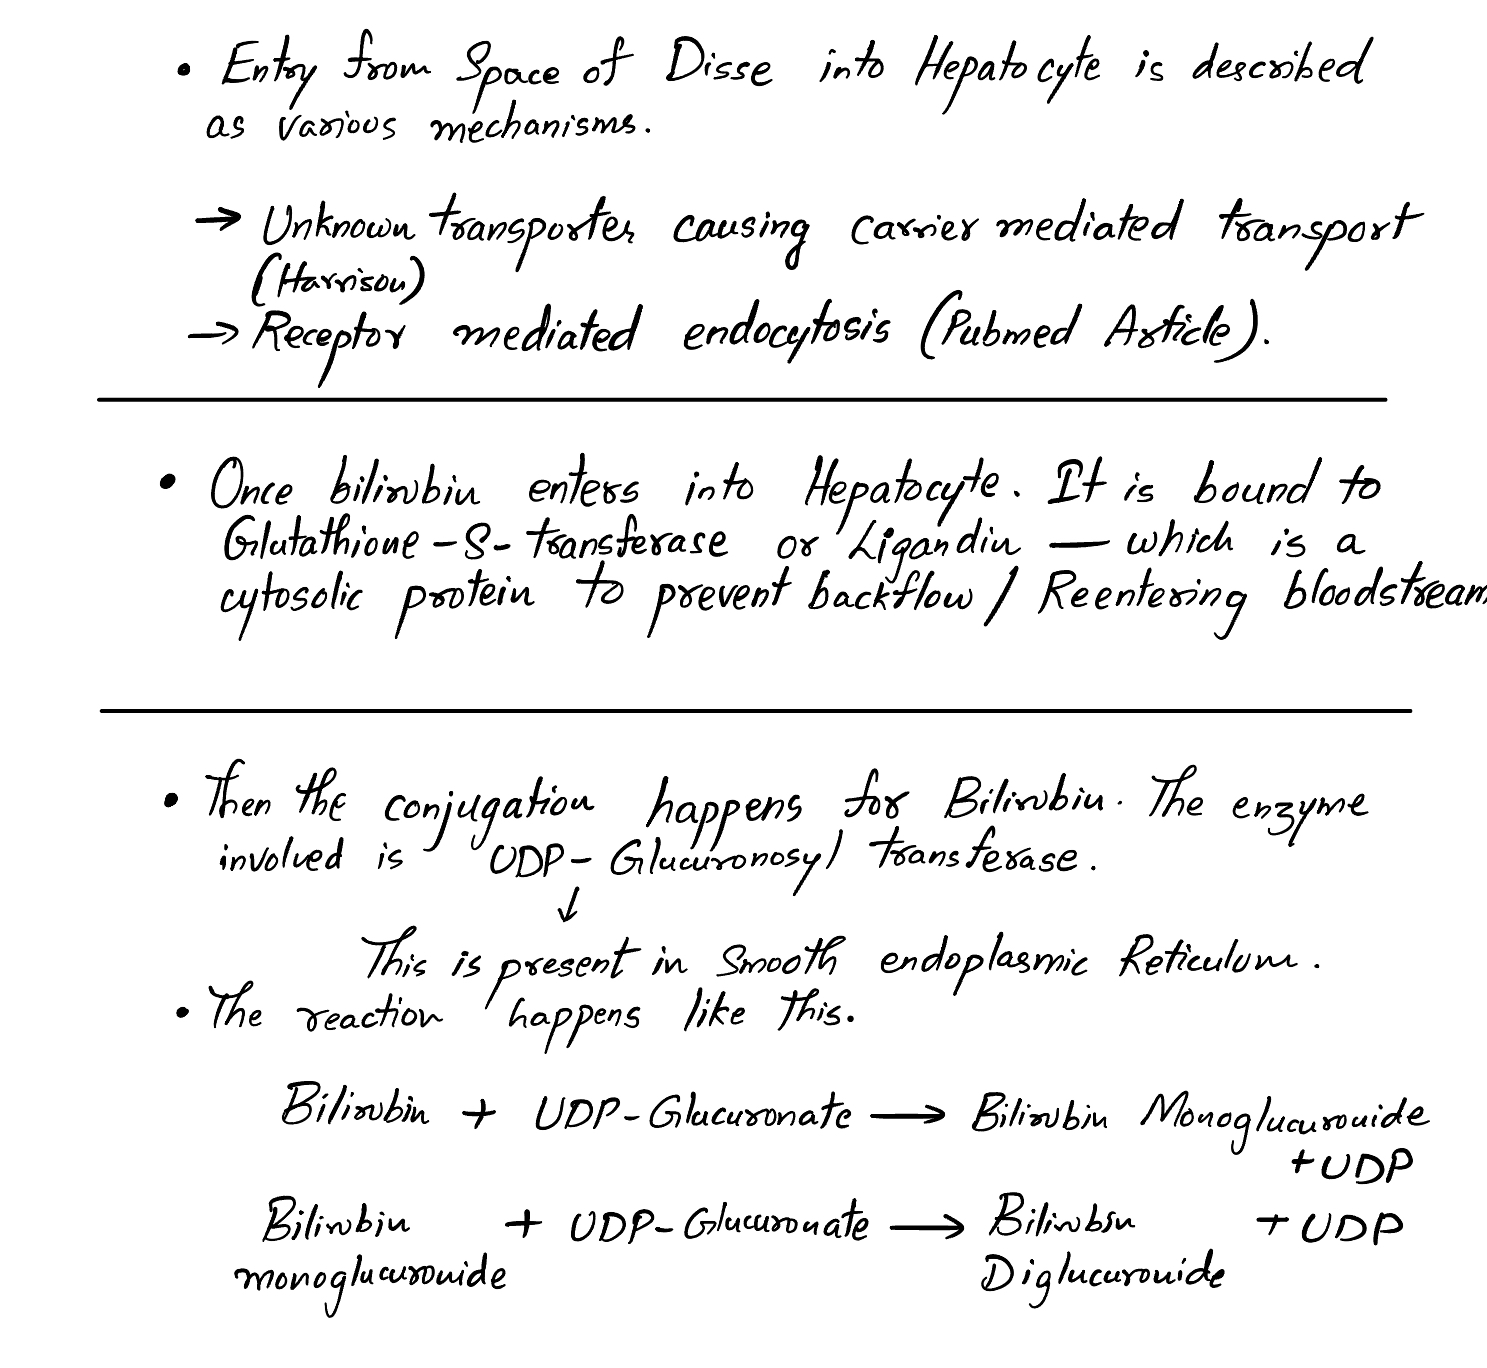 • Entry from Space of Disse into Hepatocyte is described
as various mechanisms.
→ Unknown transporter causing carrier mediated transport
(Harrison)
→ Receptor mediated endocytosis (Pubmed Article).
• Once bilirubin enters into Hepatocyte. It is bound to
Glutathione-S-transferase or Ligandin — which is a
cytosolic protein to prevent backflow / Reentering bloodstream
• Then the conjugation happens for Bilirubin. The enzyme
involved is UDP-Glucuronosyl transferase.
↓
This is present in Smooth endoplasmic Reticulum.
• The reaction happens like this.
Bilirubin + UDP-Glucuronate → Bilirubin Monoglucuronide
+ UDP
Bilirubin + UDP-Glucuronate → Bilirubin + UDP
monoglucuronide Diglucuronide